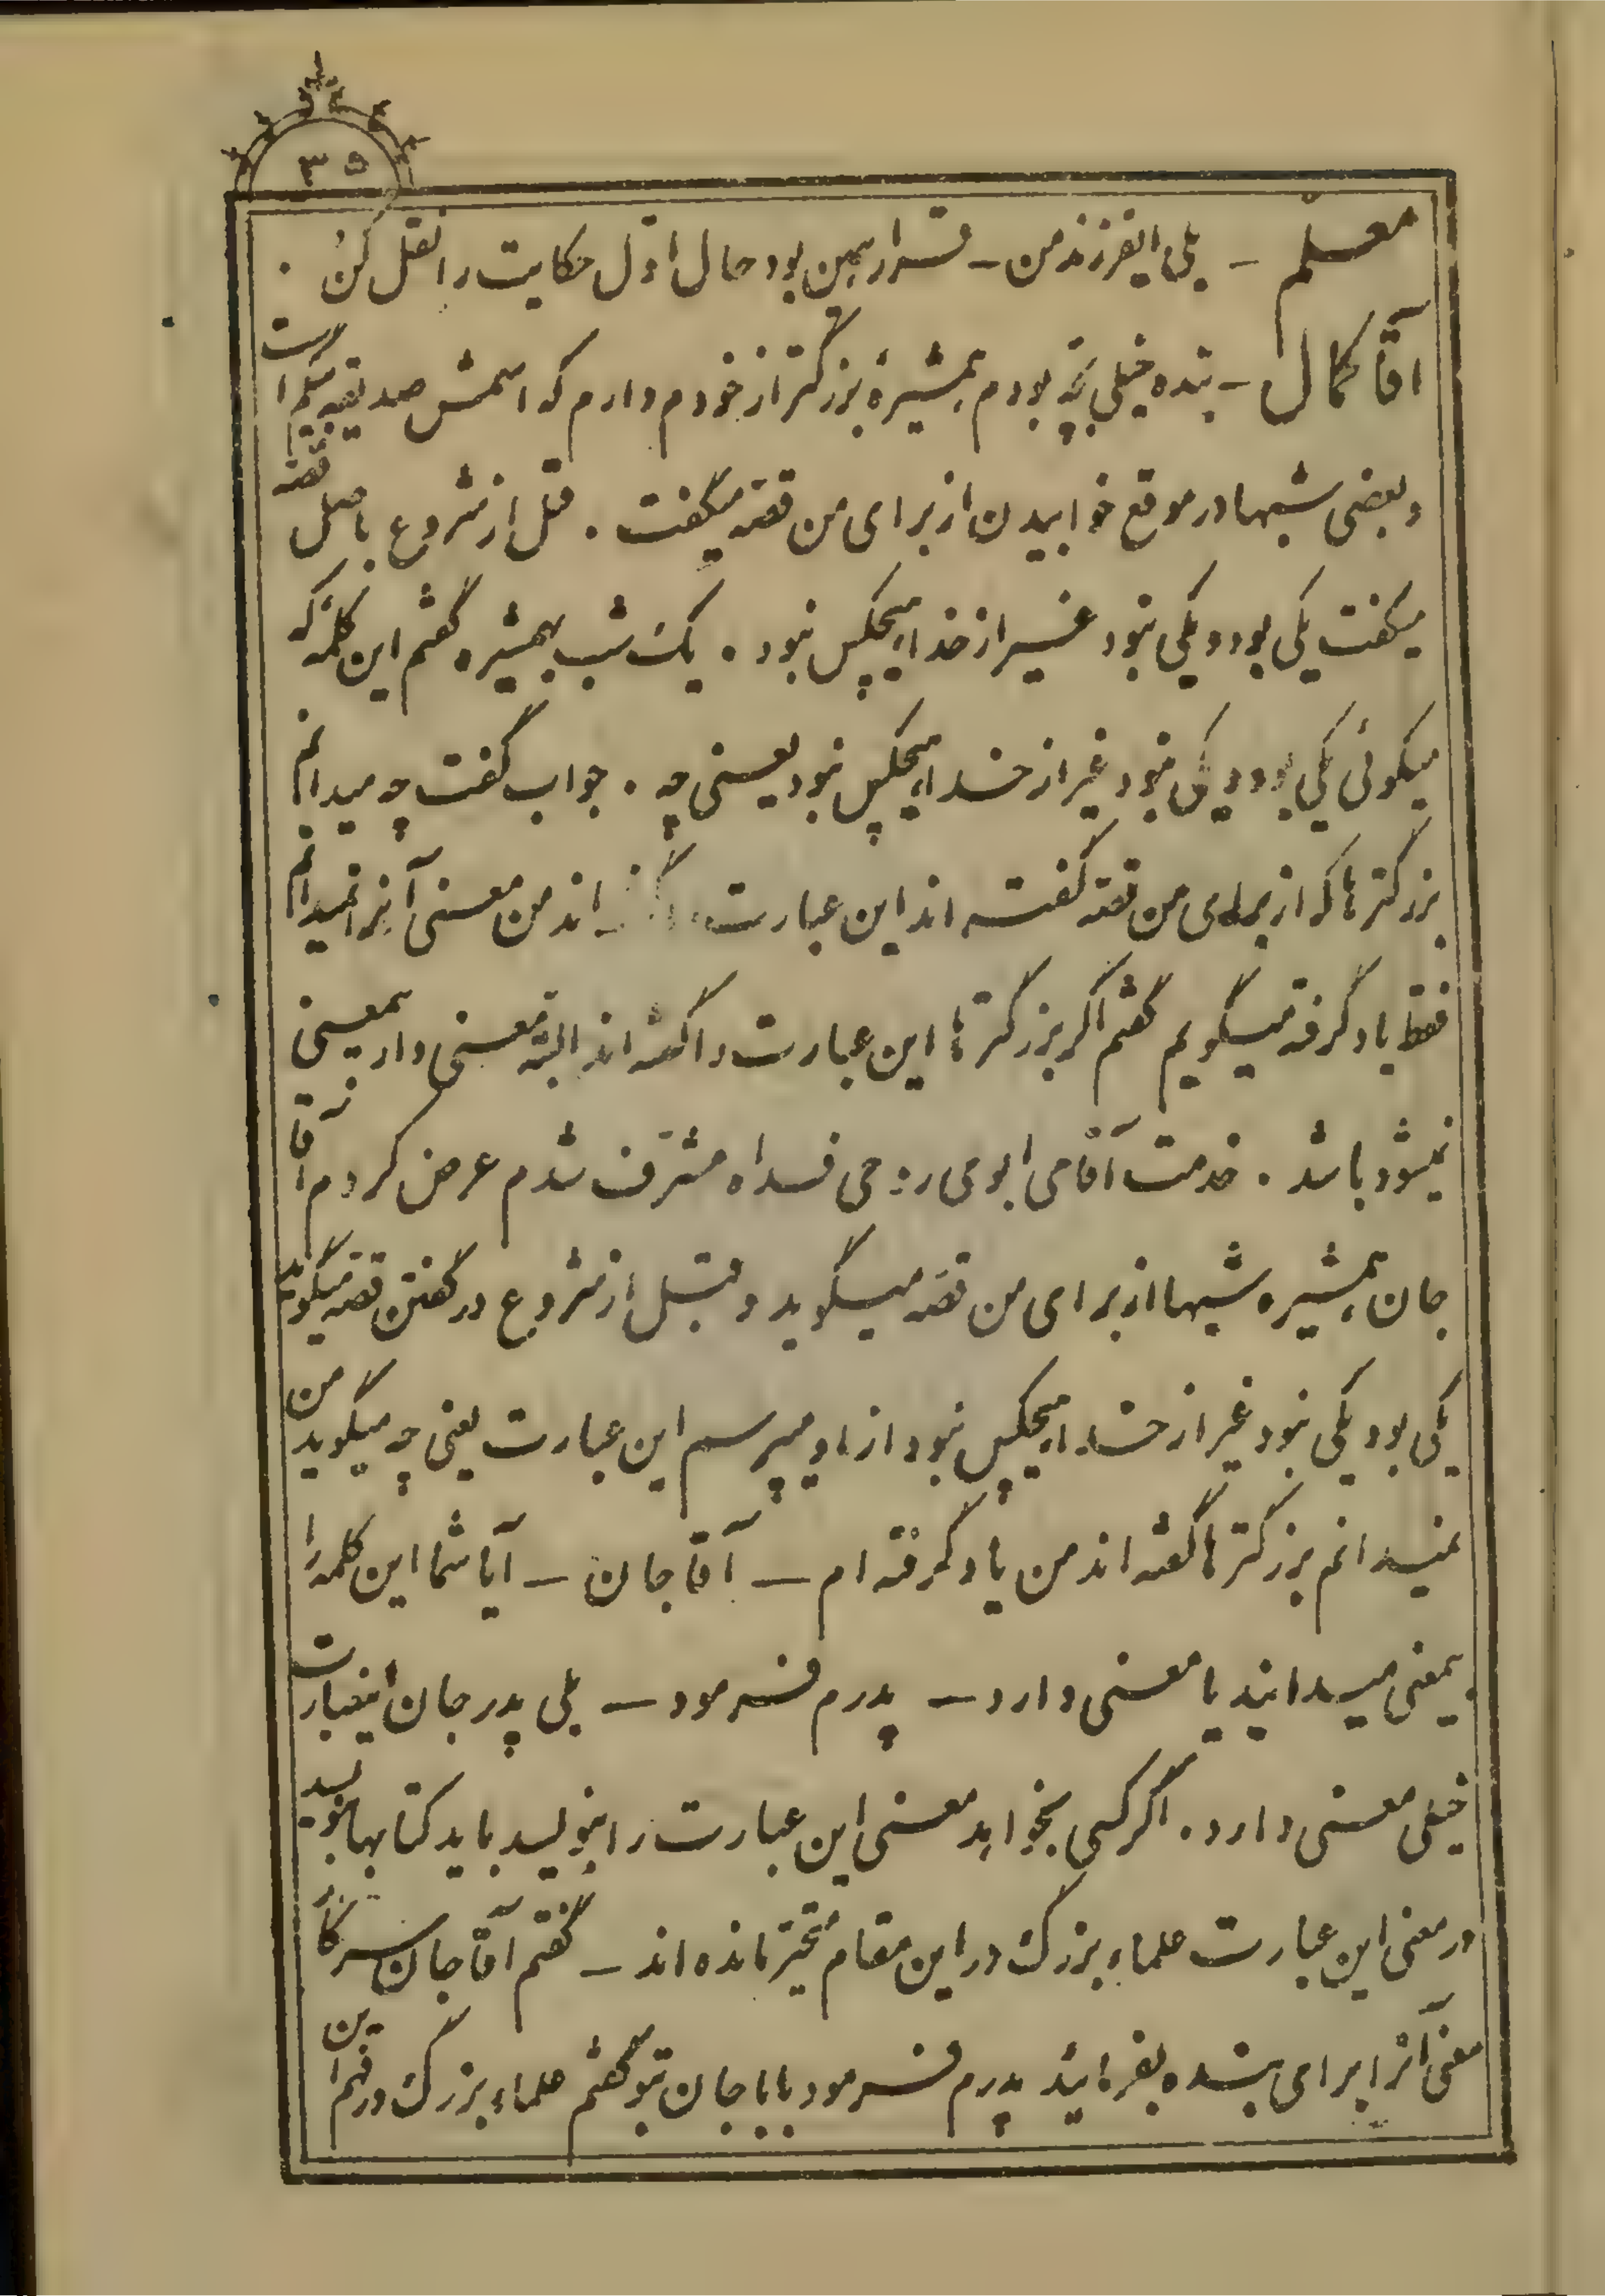 ۳۵
معلّم – بلی ایفرزند من – قرار همین بود حال اوّل حکایت را نقل کن .
آقا کمال – بنده خیلی بچّه بودم همشیرهٔ بزرگتر از خودم دارم که اسمش صدیقه بیگم است
و بعضی شبها در موقع خوابیدن از برای من قصّه میگفت . قبل از شروع باصل قصّه
میگفت یکی بود و یکی نبود غیر از خدا هیچکس نبود . یک شب بهمشیره گفتم این کلمه که
میگوئی یکی بود و یکی نبود غیر از خدا هیچکس نبود یعنی چه . جواب گفت چه میدانم
بزرگترها که از برای من قصّه گفته اند این عبارت اند من معنی آنرا نمیدانم
فقط یاد گرفته میگویم گفتم اگر بزرگترها این عبارت را گفته اند البتّه معنی دارد بیمعنی
نمیشود باشد . خدمت آقای ابوی روحی فداه مشرّف شدم عرض کردم آقا
جان همشیره شبها از برای من قصّه میگوید و قبل از شروع در گفتن قصّه میگوید
یکی بود یکی نبود غیر از خدا هیچکس نبود از او میپرسم این عبارت یعنی چه میگوید من
نمیدانم بزرگترها گفته اند من یاد گرفته ام – آقا جان – آیا شما این کلمه را
بیمعنی میدانید یا معنی دارد – پدرم فرمود – بلی پدر جان اینعبارت
خیلی معنی دارد . اگر کسی بخواهد معنی این عبارت را بنویسد باید کتابها بنویسد
در معنی این عبارت علماء بزرگ در این مقام متحیّر مانده اند – گفتم آقا جان سرکار
معنی آنرا برای بنده بفرمائید پدرم فرمود بابا جان بتو گفتم علماء بزرگ در فهم این